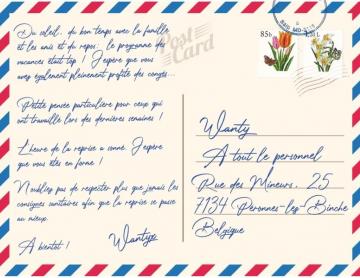 Du soleil, du bon temps avec la famille
et les amis et du repos, le programme des
vacances était top ! J'espère que vous
avez également pleinement profité des congés...
Post
Card
Petite pensée particulière pour ceux qui
ont travaillé lors des dernières semaines !
L'heure de la reprise a sonné. J'espère
que vous êtes en forme !
N'oubliez pas de respecter plus que jamais les
consignes sanitaires afin que la reprise se passe
au mieux.
A bientôt !
Wantys
85b
1,20 L
Wanty
A tout le personnel
Rue des Mineurs, 25
7134 Peronnes-lez-Binche
Belgique